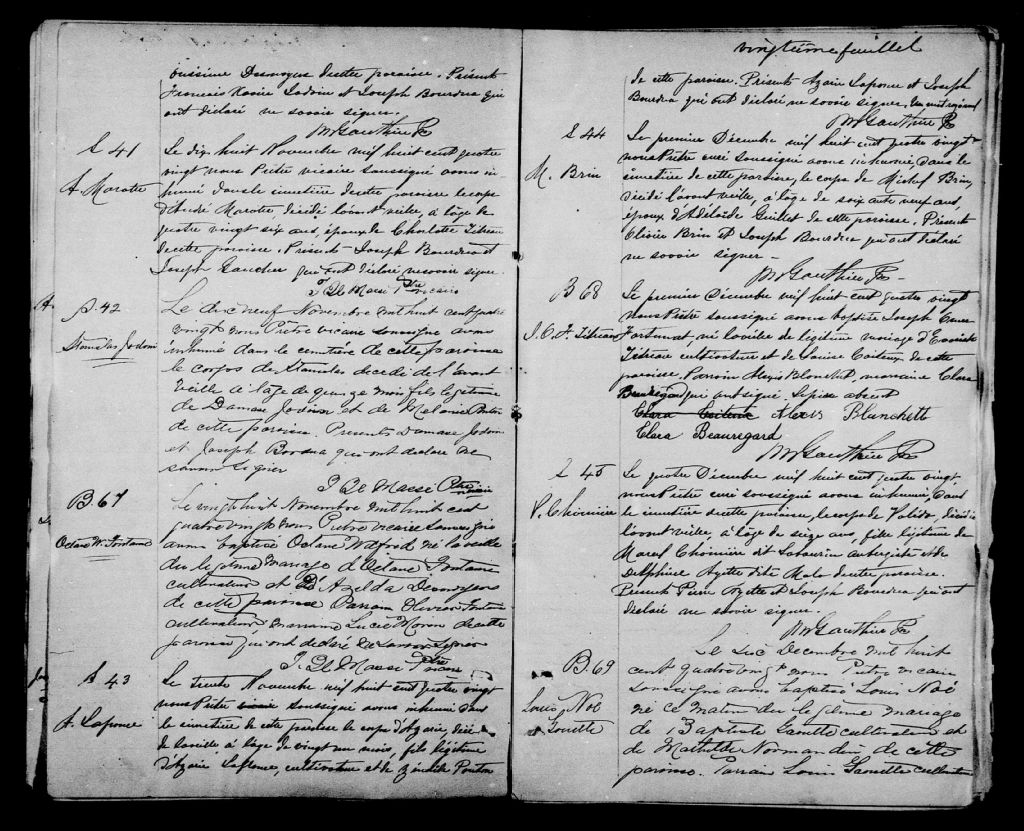 cuisinier Desnoyers de cette paroisse. Présents
Francois Xavier Jodoin et Joseph Bourdua qui
ont déclaré ne savoir signer.
M Gauthier Ptr
S 41
A. Marotte
Le dix huit Novembre mil huit cent quatre
vingt nous Prêtre vicaire soussigné avons in-
humé dans le cimetière de cette paroisse le corps
d'André Marotte, décédé l'avant veille, à l'âge de
quatre vingt six ans, époux de Charlotte
de cette paroisse. Présents Joseph Bourdua et
Joseph Gaucher qui ont déclaré ne savoir signer.
Ptre vicaire
S. 42
Stanislas Jodoin
Le dix neuf Novembre mil huit cent quatre
vingt nous Prêtre vicaire soussigné avons
inhumé dans le cimetière de cette paroisse
le corps de Stanislas décédé de l'avant
veille à l'age de quinze mois fils légitime
de Damase Jodoin et de Melanie
de cette paroisse. Presents Damase Jodoin
et Joseph Bordua qui ont déclaré ne
savoir signer
Ptre vicaire
B. 67
Octave W. Fontaine
Le vingt huit Novembre mil huit cent
quatre vingt nous Prêtre vicaire soussigné
avons baptisé Octave Wilfrid né la veille
du légitime mariage d'Octave Fontaine
cultivateur et d'Azelda Desnoyers
de cette paroisse Parrain Olivier Fontaine
cultivateur marraine Lucie Moron de cette
paroisse qui ont déclaré ne savoir signer
Ptre vicaire
S 43
A. Laponse
Le trente Novembre mil huit cent quatre vingt
nous Prêtre vicaire soussigné avons inhumé dans
le cimetière de cette paroisse le corps d'Azarie, décédé
de la veille à l'âge de vingt un mois, fils légitime
d'Azarie Laponse, cultivateur et de
vingtième feuillet
de cette paroisse. Présents Azarie Laponse et Joseph
Bourdua qui ont déclaré ne savoir signer.
M Gauthier Ptr
S 44
M. Brin
Le premier Décembre mil huit cent quatre vingt
nous Prêtre curé soussigné avons inhumé dans le
cimetière de cette paroisse, le corps de Michel Brin,
décédé l'avant veille, à l'âge de soixante neuf ans,
époux d'Adélaïde Guillet de cette paroisse. Présents
Olivier Brin et Joseph Bourdua qui ont déclaré
ne savoir signer -
M Gauthier Ptr
B 68
Le premier Décembre mil huit cent quatre vingt
nous Prêtre soussigné avons baptisé Joseph
Fortunat, né la veille du légitime mariage
cultivateur et de Louise Coiteux de cette
paroisse. Parrain Alexis Blanchet, marraine Clara
Beauregard qui ont signé. Le père absent
Clara Coiteux Alexis Blanchett
Clara Beauregard
M Gauthier Ptr
S 45
V. Chonière
Le quatre Décembre mil huit cent quatre vingt,
nous Prêtre curé soussigné avons inhumé, dans
le cimetière de cette paroisse, le corps de Valida, décédée
l'avant veille, à l'âge de seize ans, fille légitime de
Marcel Chonière dit Sabourin aubergiste et de
Delphine Ayette dite Malo de cette paroisse.
Présents Pierre Ayette et Joseph Bourdua qui ont
déclaré ne savoir signer.
M Gauthier Ptr
B 69
Louis Noé
Goyette
Le Six Decembre mil huit
cent quatre vingt nous Prêtre vicaire
soussigné avons baptisé Louis Noé
né ce matin du légitime mariage
de Baptiste Goyette cultivateur et
de Mathilde Normandin de cette
paroisse. Parrain Louis Goyette cultivateur